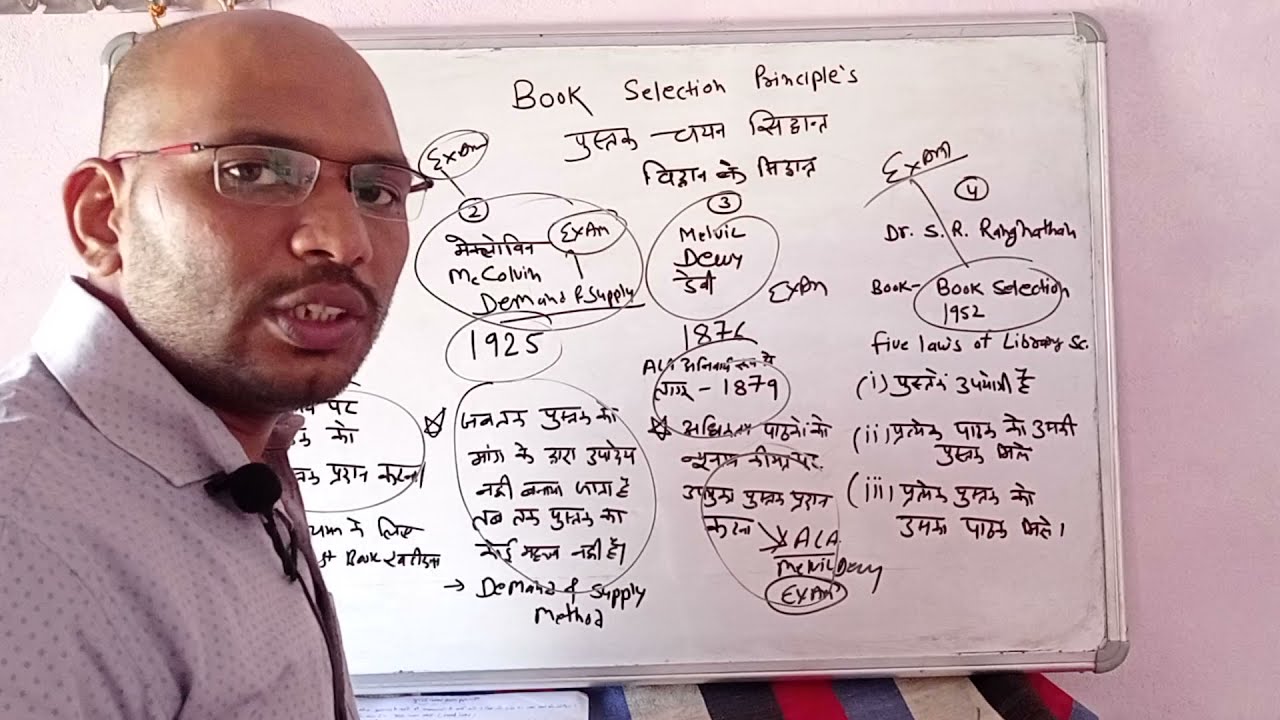 Book Selection Principle's
पुस्तक - चयन सिद्धान्त
विद्वान के सिद्धान्त
पर
को
प्रदान करना
के लिए
Book खरीदना
Exam
②
मैक्लोविन
Exam
McColvin
Demand & Supply
1925
जब तक पुस्तक को
मांग के द्वारा उपादेय
नहीं बनाया जाता है
तब तक पुस्तक का
कोई महत्व नहीं है।
→ Demand & Supply
Method
③
Melvil
Dewy
डेवी
Exam
1876
ALA अनिवार्य रूप से
लागू - 1879
अधिकतम पाठकों को
न्यूनतम कीमत पर
उपयुक्त पुस्तक प्रदान
करना
ALA
Melvil Dewy
Exam
Exam
④
Dr. S. R. Ranghathan
Book - Book Selection
1952
five laws of Library Sc.
(i) पुस्तकें उपयोगी है
(ii) प्रत्येक पाठक को उसकी
पुस्तक मिले
(iii) प्रत्येक पुस्तक को
उसका पाठक मिले।